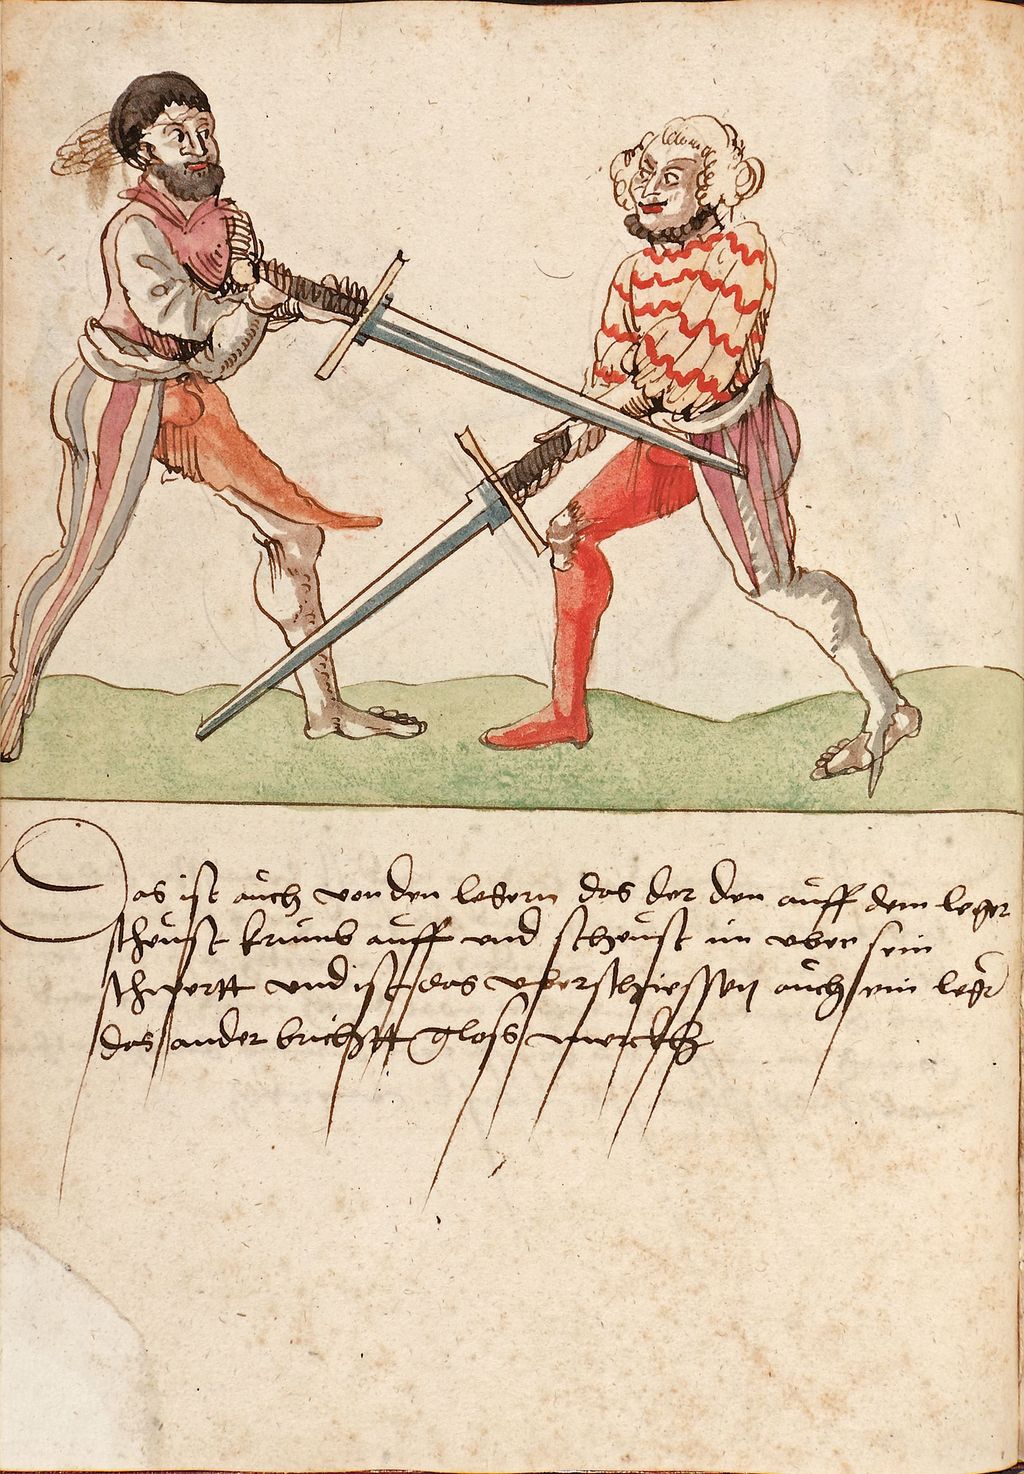 Das ist auch von den legern das der den auff dem leger
scheust krumb auff und scheust im uber sein
schwertt und ist das uberschiessen auch ein leger
das ander brichstt gloss merckh